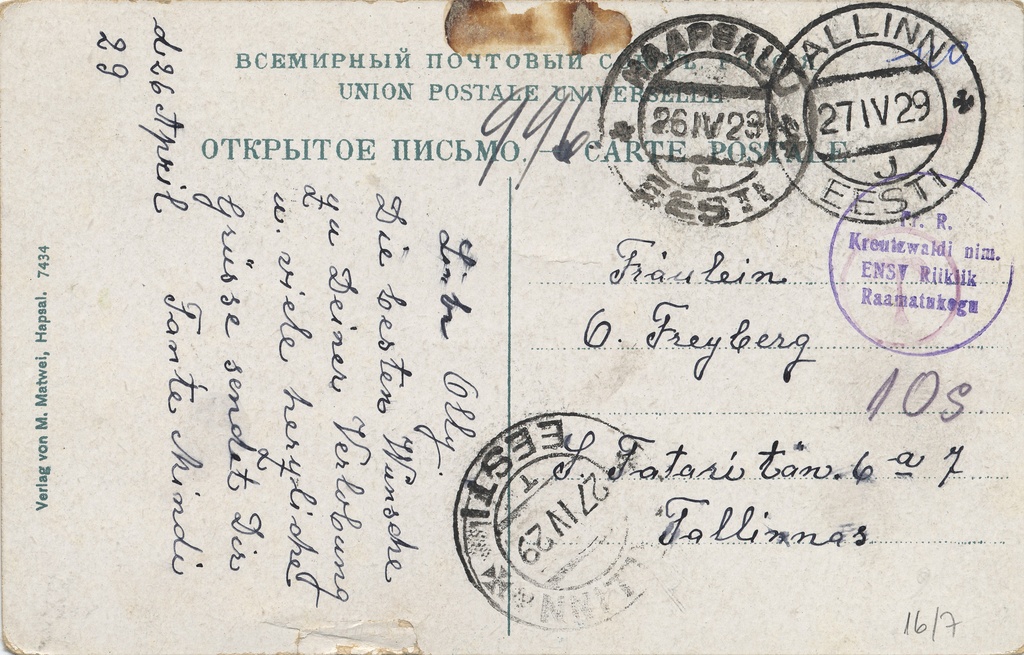 ВСЕМИРНЫЙ ПОЧТОВЫЙ
UNION POSTALE UNIVERSELLE
ОТКРЫТОЕ ПИСЬМО. — CARTE POSTALE
996
HAAPSALU
26 IV 29
C
EESTI
TALLINN
27 IV 29
J
EESTI
Fr. R.
Kreutzwaldi nim.
ENSV Riiklik
Raamatukogu
10s
d 26 April
29
Olly.
Die besten Wünsche
zu Deiner Verlobung
u. viele herzliche
Grüsse sendet Dir
Tante Mindi
Fräulein
O. Freyberg
S. Tatari tän. 6 a 7
Tallinnas
EESTI
T
27 IV 29
TALLINN
Verlag von M. Matwei, Hapsal. 7434
16/7